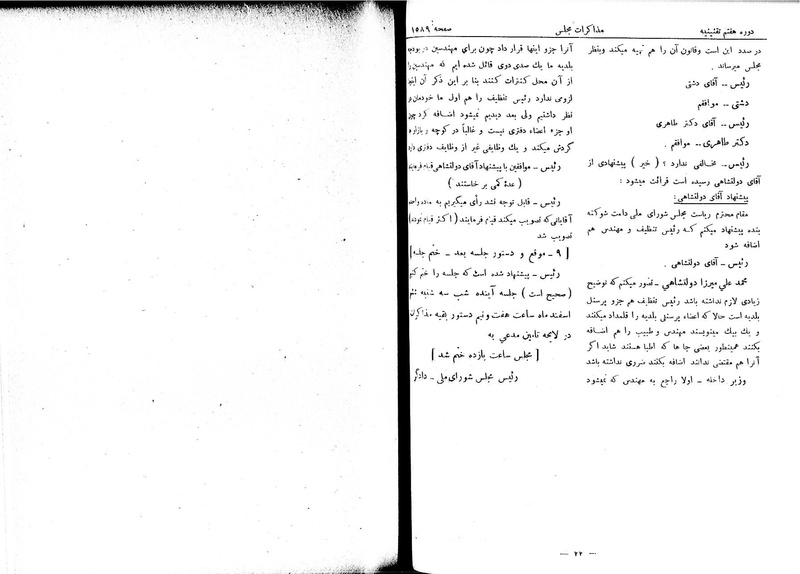 دوره هفتم تقنینیه
مذاکرات مجلس
صفحه ۱۵۸۹
در صدد این است وقانون آن را هم تهیه میکند وبنظر
مجلس میرساند .
رئیس -- آقای دشتی
دشتی -- موافقم
رئیس -- آقای دکتر طاهری
دکتر طاهری -- موافقم .
رئیس -- مخالفی ندارد ؟ ( خیر ) پیشنهادی از
آقای دولتشاهی رسیده است قرائت میشود :
پیشنهاد آقای دولتشاهی :
مقام محترم ریاست مجلس شورای ملی دامت شوکته
بنده پیشنهاد میکنم که رئیس تنظیف و مهندس هم
اضافه شود
رئیس - آقای دولتشاهی .
محمد علی میرزا دولتشاهی - تصور میکنم که توضیح
زیادی لازم نداشته باشد رئیس تنظیف هم جزو پرسنل
بلدیه است حالا که اعضاء پرسنلی بلدیه را قلمداد میکنند
و یك بیك مینویسند مهندس و طبیب را هم اضافه
بکنند همینطور بعضی جا ها که اطبا هستند شاید اگر
آنرا هم مقتضی ندانند اضافه بکنند ضرری نداشته باشد
وزیر داخله - اولا راجع به مهندس که نمیشود
آنرا جزو اینها قرار داد چون برای مهندسین در بودجه
بلدیه ما یك صدی دوی قائل شده ایم که مهندسین را
از آن محل کنترات کنند بنا بر این ذکر آن اینجا
لزومی ندارد رئیس تنظیف را هم اول ما خودمان در
نظر داشتیم ولی بعد دیدیم نمیشود اضافه کرد چون
او جزء اعضاء دفتری نیست و غالباً در کوچه و بازار
گردش میکند و یك وظایفی غیر از وظایف دفتری دارد
رئیس - موافقین با پیشنهاد آقای دولتشاهی قیام فرمایند
( عدۀ کمی بر خاستند )
رئیس - قابل توجه نشد رأی میگیریم به ماده واحده
آقایانی که تصویب میکنند قیام فرمایند ( اکثر قیام نمودند )
تصویب شد
[ ۹ - موقع و دستور جلسه بعد - ختم جلسه ]
رئیس - پیشنهاد شده است که جلسه را ختم کنیم
( صحیح است ) جلسه آینده شب سه شنبه
اسفند ماه ساعت هفت و نیم دستور بقیه مذاکرات
در لایحه تامین مدعی به
[ مجلس ساعت یازده ختم شد ]
رئیس مجلس شورای ملی - دادگر
— ۲۲ —